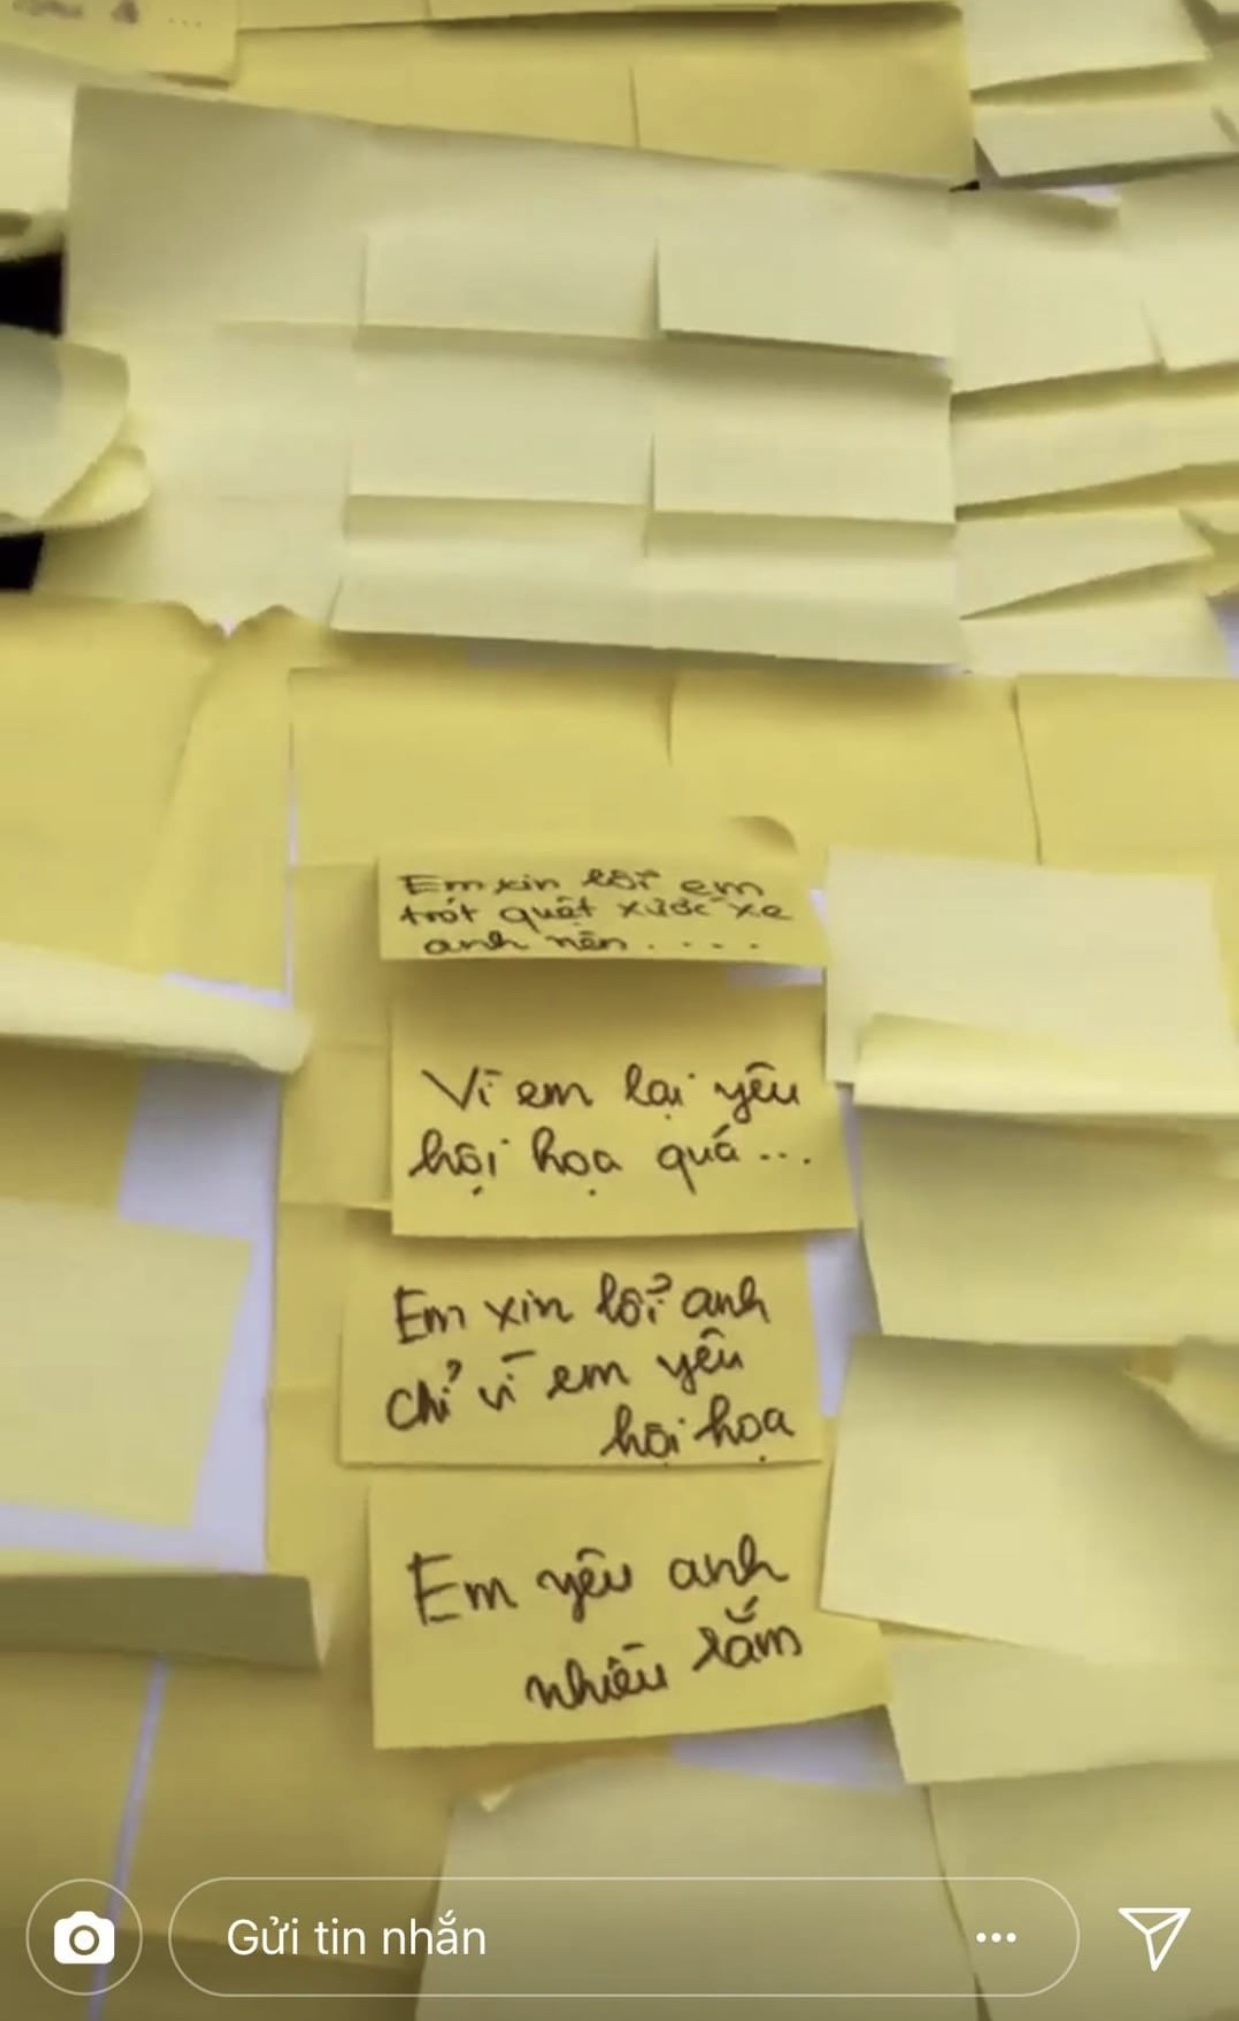 Em xin lỗi em
trót quệt xước xe
anh nên....
Vì em lại yêu
hội họa quá...
Em xin lỗi anh
chỉ vì em yêu
hội họa
Em yêu anh
nhiều lắm
Gửi tin nhắn